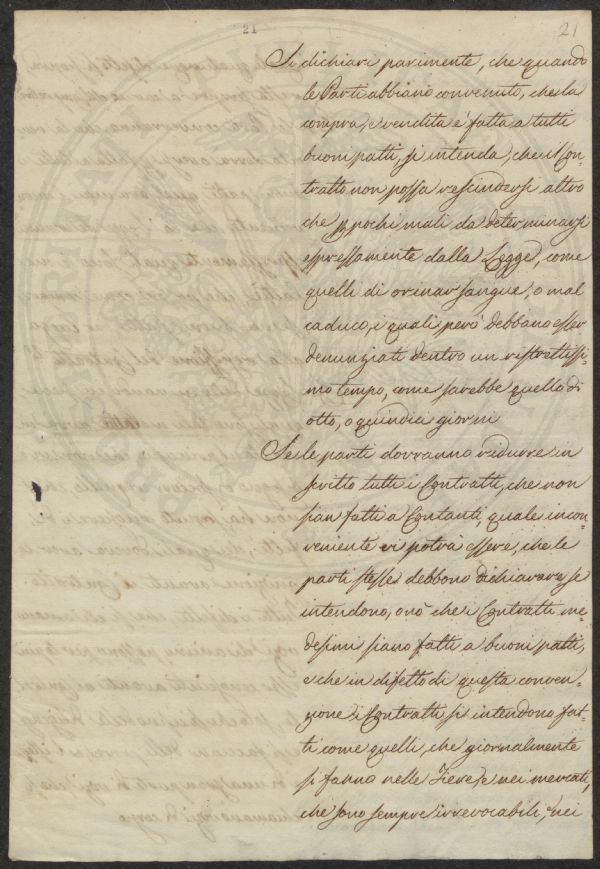 21
21
Si dichiari parimente, che quando
le Parti abbiano convenuto, che la
compra, e vendita è fatta a tutti
buoni patti, si intenda, che il Con-
tratto non possa rescindersi altro
che pochi mali da determinarsi
espressamente dalla Legge, come
quelli di orinar sangue, o mal
caduco, i quali però debbano esser
denunziati dentro un ristrettissi-
mo tempo, come sarebbe quello di
otto, o quindici giorni
Se le parti dovranno ridurre in
scritto tutti i Contratti, che non
sian fatti a Contanti, quale incon-
veniente vi potrà essere, che le
parti stesse debbono dichiarare se
intendono, o nò che i Contratti me-
desimi siano fatti a buoni patti,
e che in difetto di questa conven-
zione i Contratti si intendono fat-
ti come quelli, che giornalmente
si fanno nelle Fiere, e nei mercati,
che sono sempre irrevocabili, nei